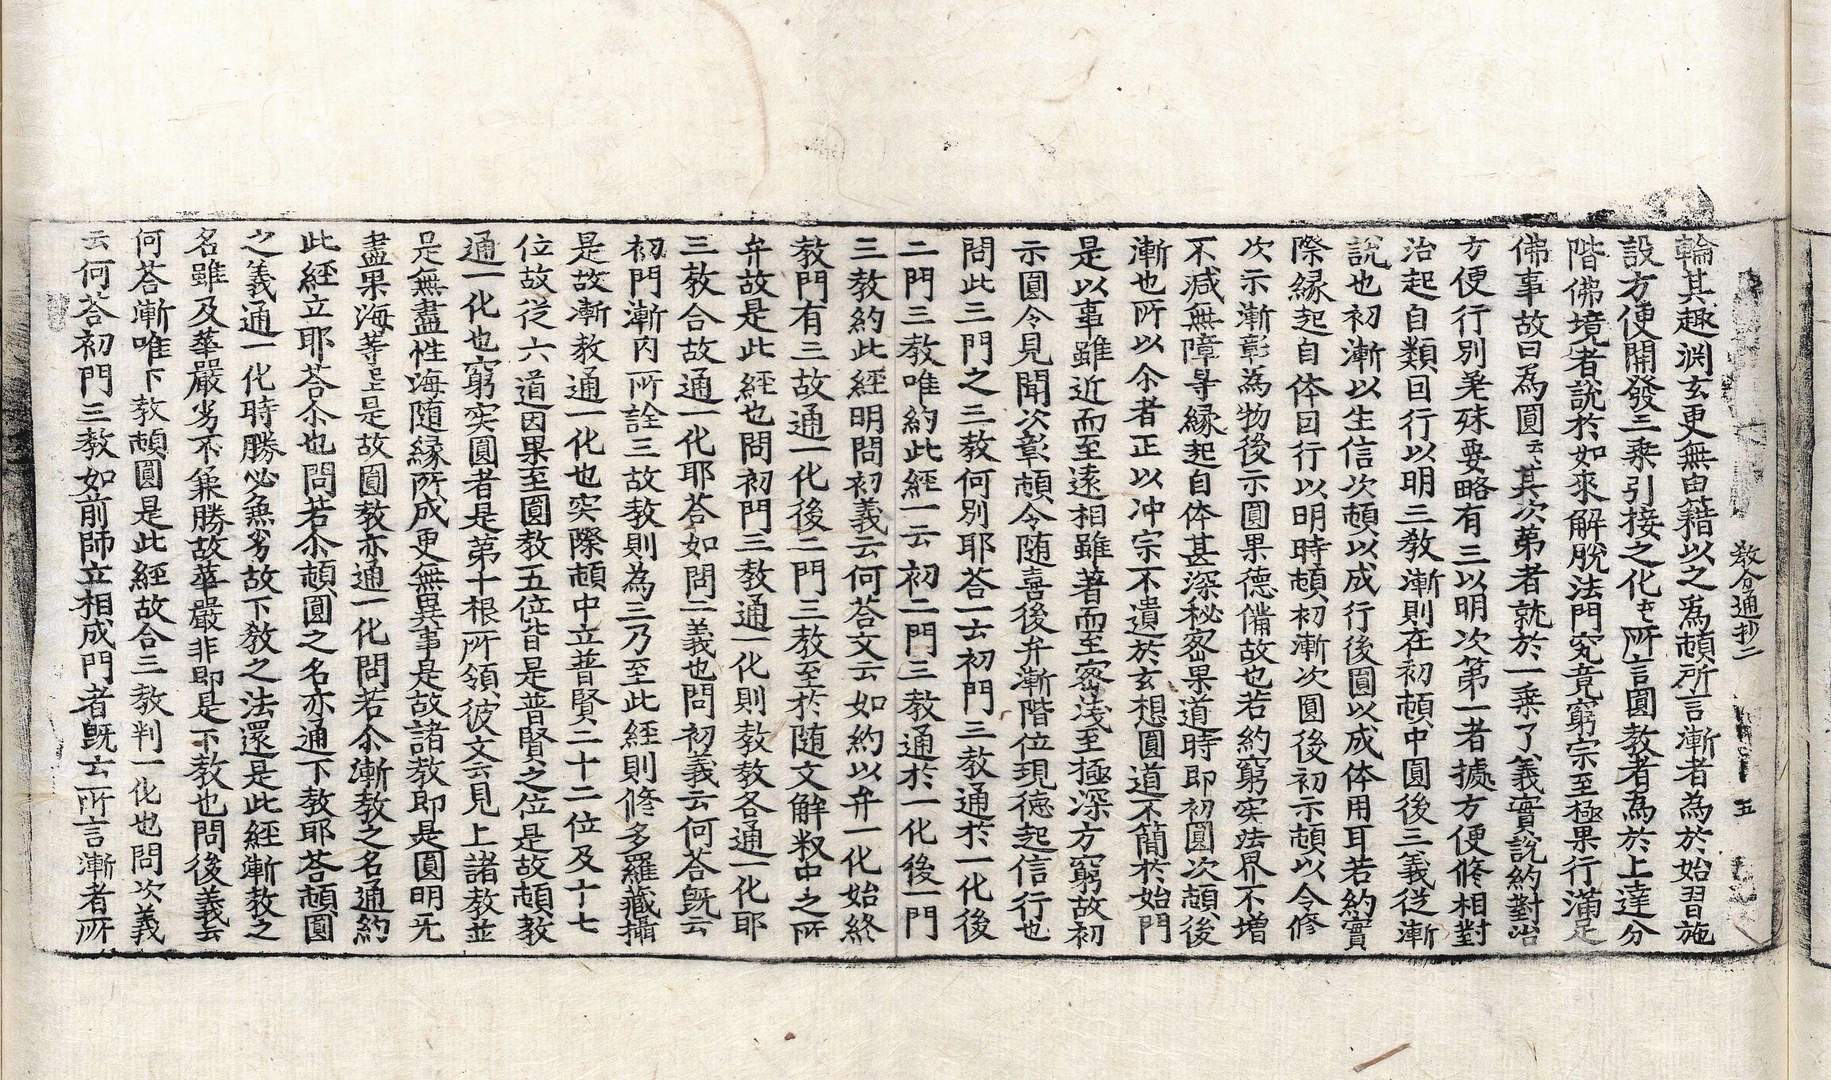 教分通抄二　五
輪其趣渊玄更無由藉以之爲頓所言漸者為於始習施
設方便開發三乘引接之化云云所言圓教者為於上達分
階佛境者說於如來解脫法門究竟窮宗至極果行滿足
佛事故曰爲圓云云其次第者就於一乘了義實說約對治
方便行別乘殊要略有三以明次第一者據方便修相對
治起自類因行以明三教漸則在初頓中圓後三義從漸
說也初漸以生信次頓以成行後圓以成体用耳若約實
際緣起自体因行以明時頓初漸次圓後初示頓以令修
次示漸彰為物後示圓果德俻故也若約窮实法界不增
不减無障㝵緣起自体甚深秘密果道時即初圓次頓後
漸也所以尒者正以冲宗不遺於玄想圓道不簡於始門
是以事雖近而至遠相雖著而至密淺至極深方窮故初
示圓令見聞次彰頓令随喜後弁漸階位現德起信行也
問此三門之三教何別耶荅一云初門三教通於一化後
二門三教唯約此經一云初二門三教通於一化後一門
三教約此經明問初義云何荅文云如約以弁一化始終
教門有三故通一化後二門三教至於随文解釈中之所
弁故是此經也問初門三教通一化則教教各通一化耶
三教合故通一化耶荅如問二義也問初義云何荅旣云
初門漸内所詮三故教則為三乃至此經則修多羅藏攝
是故漸教通一化也实際頓中立普賢二十二位及十七
位故從六道因果至圓教五位皆是普賢之位是故頓教
通一化也窮实圓者是第十根所領彼文云見上諸教並
是無盡性海随緣所成更無異事是故諸教即是圓明无
盡果海等云云是故圓教亦通一化問若尒漸教之名通約
此經立耶荅尒也問若尒頓圓之名亦通下教耶荅頓圓
之義通一化時勝必兼劣故下教之法還是此經漸教之
名雖及華嚴劣不兼勝故華嚴非即是下教也問後義云
何荅漸唯下教頓圓是此經故合三教判一化也問次義
云何荅初門三教如前師立相成門者旣云所言漸者所